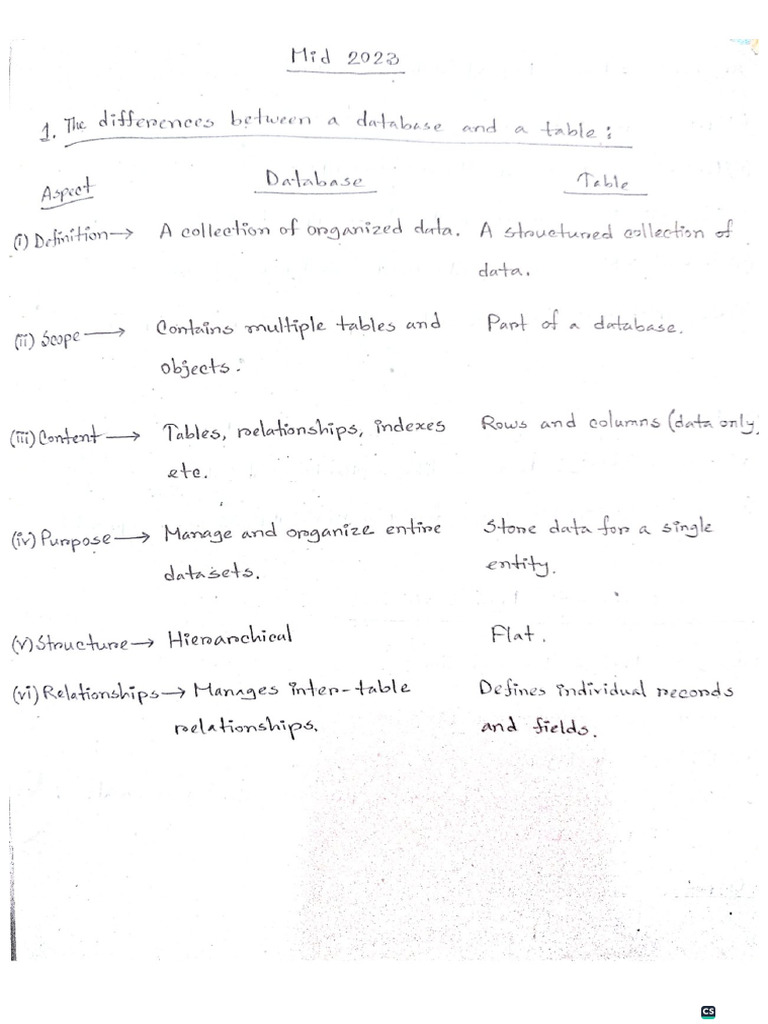 Mid 2023
1. The differences between a database and a table:
Aspect Database Table
(i) Definition → A collection of organized data. A structured collection of
data.
(ii) Scope → Contains multiple tables and Part of a database.
objects.
(iii) Content → Tables, relationships, indexes Rows and columns (data only)
etc.
(iv) Purpose → Manage and organize entire Store data for a single
datasets. entity.
(v) Structure → Hierarchical Flat.
(vi) Relationships → Manages inter-table Defines individual records
relationships. and fields.
CS